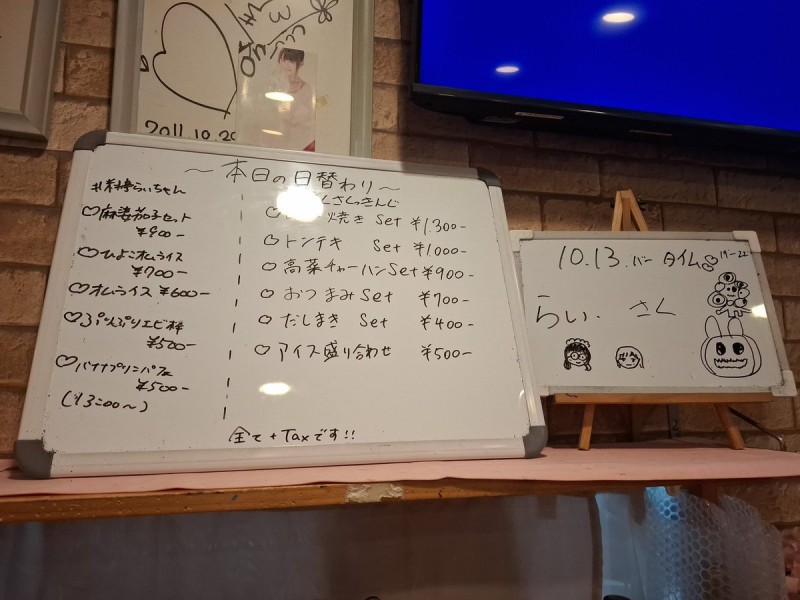 2011.10.29
〜本日の日替わり〜
らいちゃん
♡麻婆茄子セット
¥900-
♡ひよこオムライス
¥700-
♡オムライス ¥600-
♡ぷりぷりエビ
¥500-
♡バナナプリンパフェ
¥500-
(¥300〜)
さくさんじ
焼き Set ¥1.300-
○トンテキ Set ¥1000-
○高菜チャーハンSet ¥900-
○おつまみSet ¥700-
○だしまき Set ¥400-
○アイス盛り合わせ ¥500-
全て+Taxです!!
10.13.バータイム 19-22
らい. さく